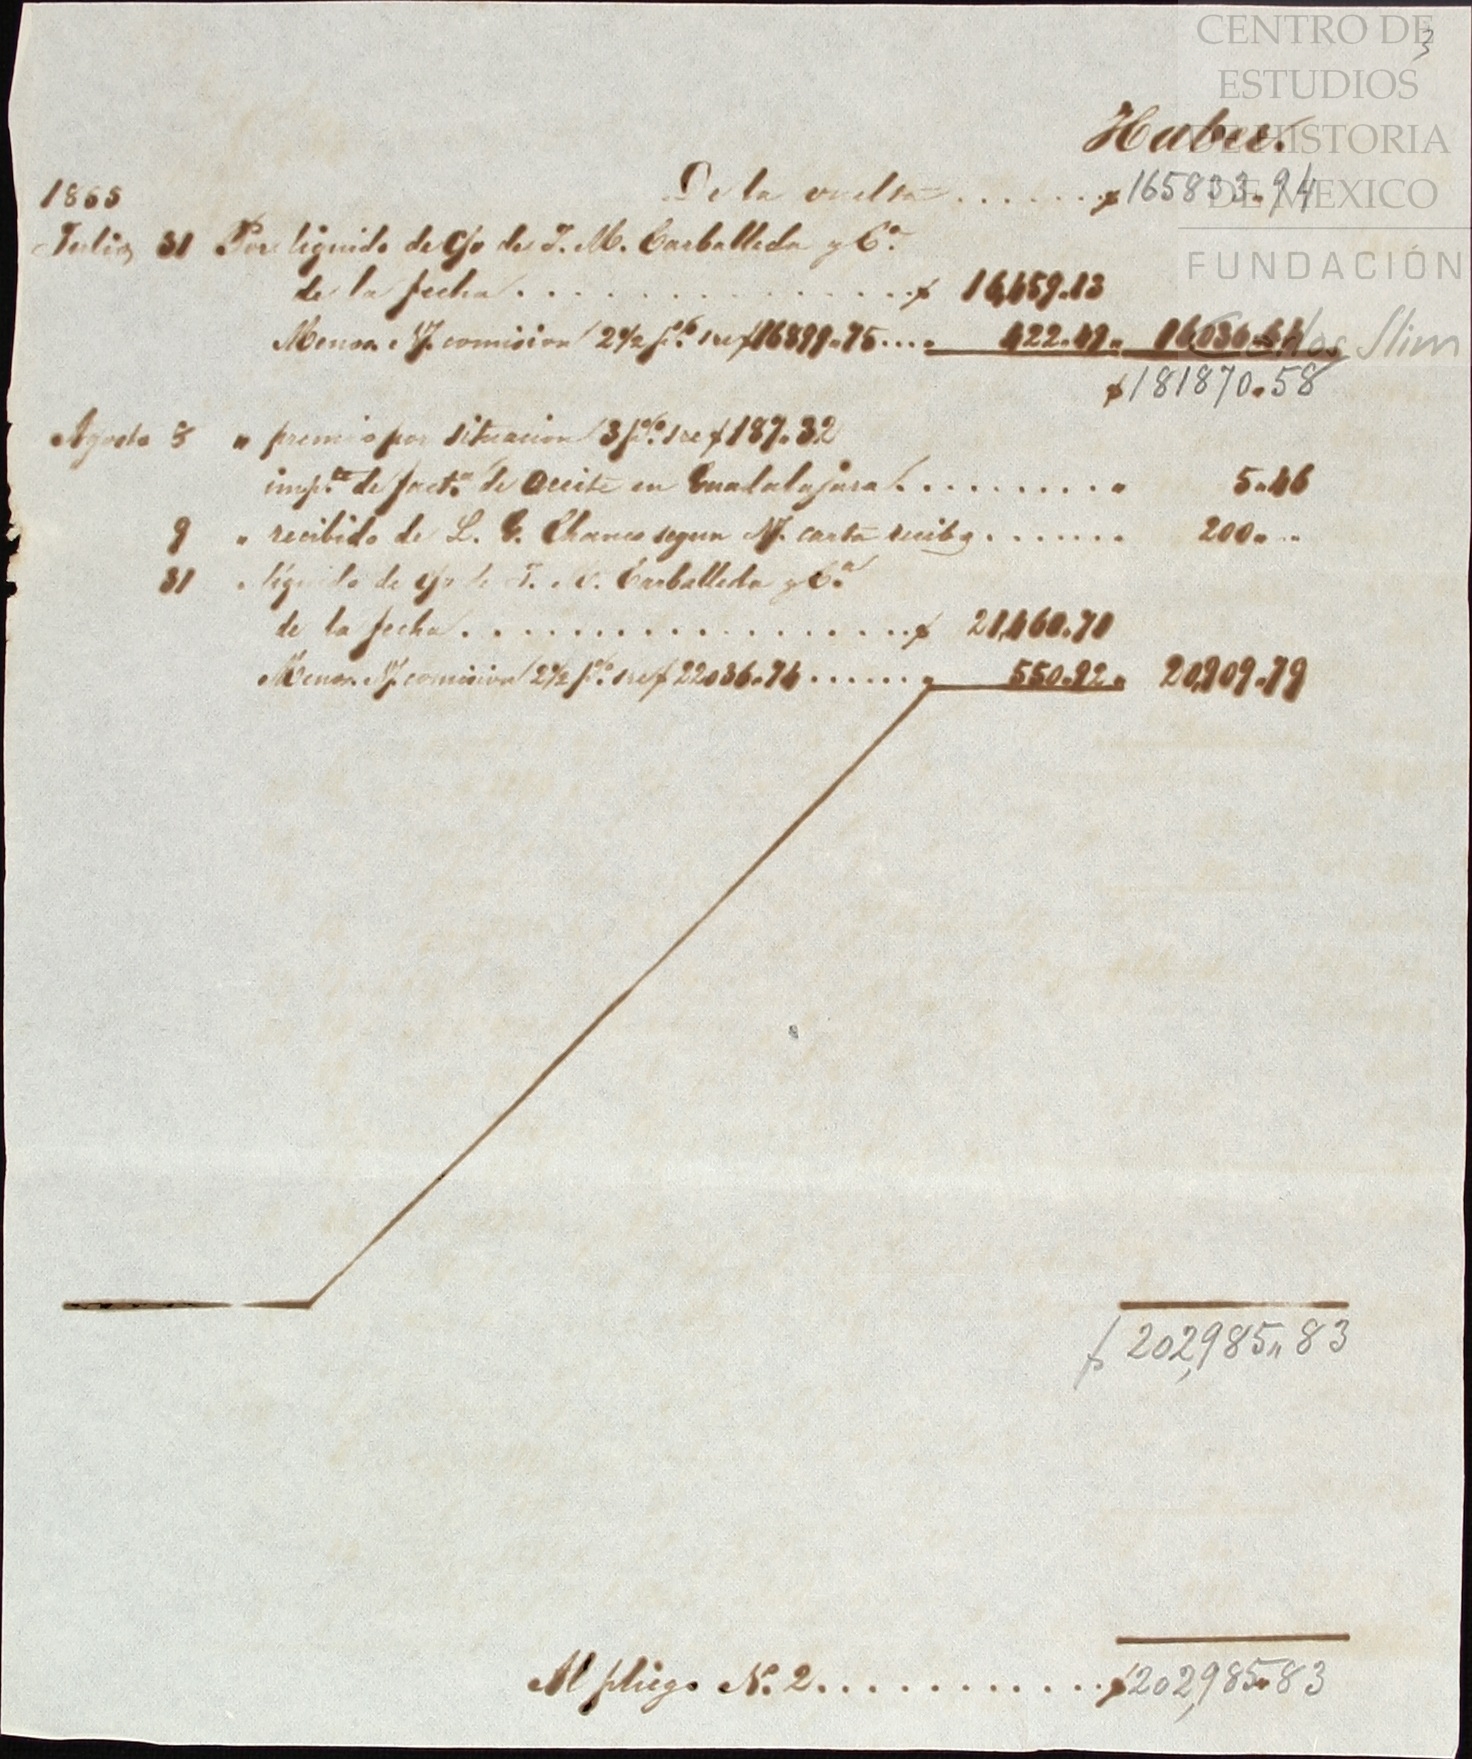 CENTRO DE
ESTUDIOS
DE HISTORIA
DE MEXICO
FUNDACIÓN
Carlos Slim
3
Haber.
De la vuelta . . . . . . $ 165833.94
1865
Julio 31 Por líquido de c/v de J. M. Carballeda y Cª
de la fecha . . . . . . . . . . . . . . . . $ 16,459.13
Menos N/. comision 2½ p% sre $ 16899.75 .... " 422.49 " 16,036.64
$ 181870.58
Agosto 8 " premio por situacion 3 p% sre $ 187.32
impte de facta de Aceite en Guadalajara . . . . . . . . . " 5.46
9 " recibido de L. G. segun N/. carta recibo . . . . . . . " 200. "
31 " líquido de c/v de J. M. Carballeda y Cª
de la fecha . . . . . . . . . . . . . . . . . . $ 21,460.71
Menos N/. comision 2½ p% sre $ 22036.74 . . . . . . " 550.92 " 20,909.79
$ 202,985.83
Al pliego No. 2 . . . . . . . . . . . . $ 202,985.83